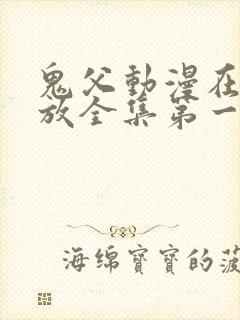 鬼父動漫在
放全集第一
海绵寶寶的菠